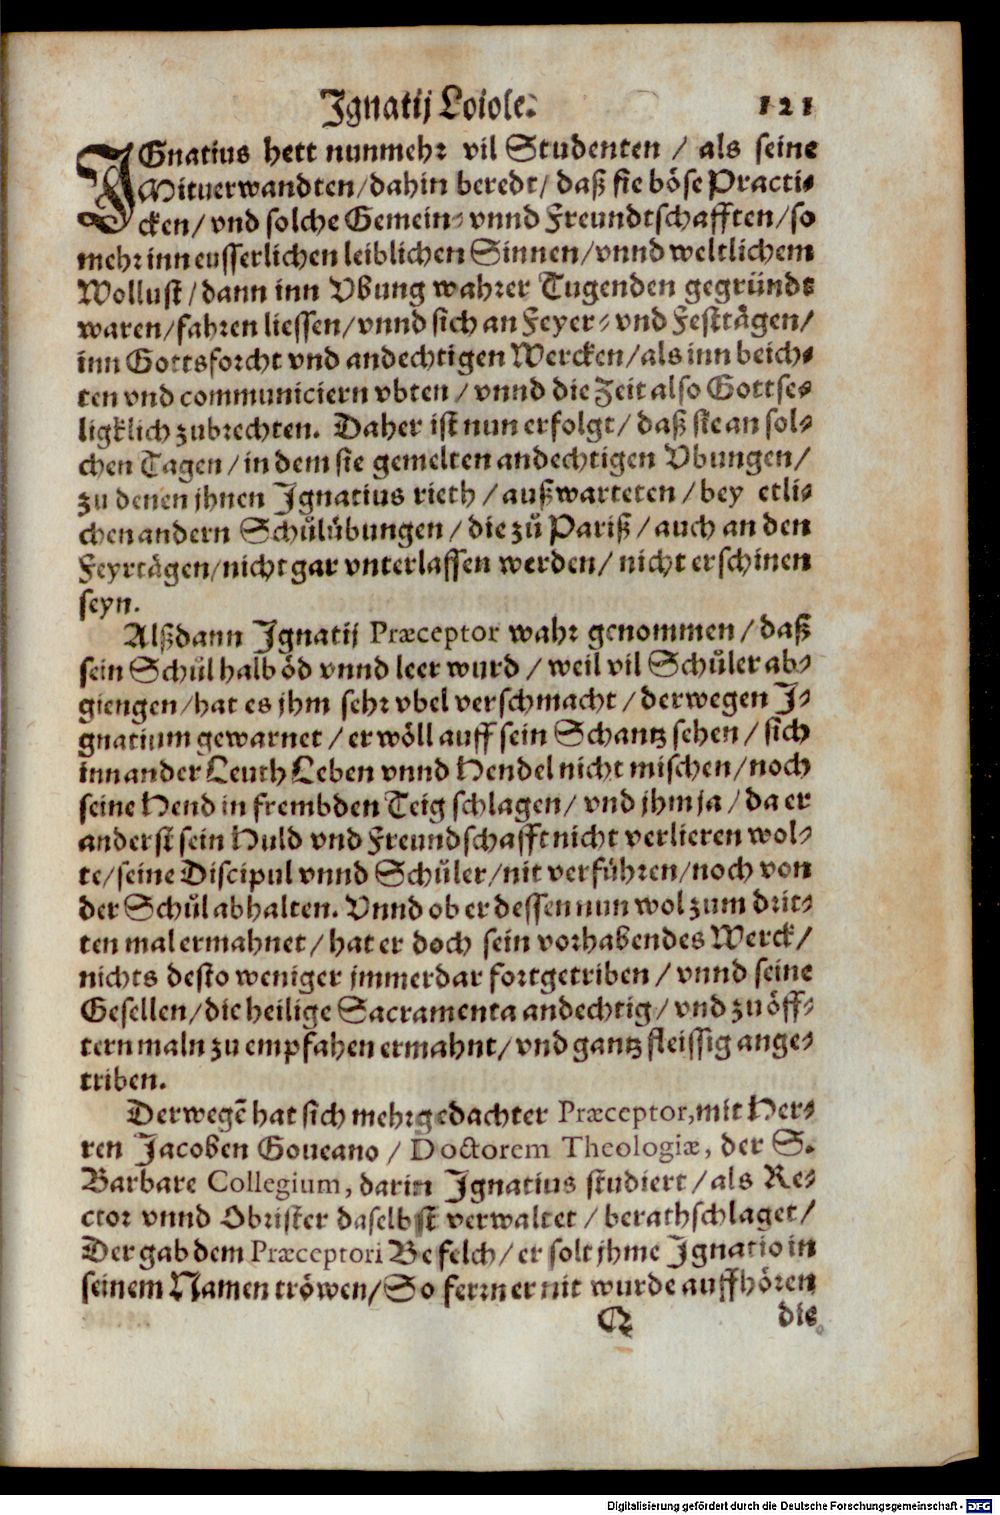 Ignatij Loiole. 121
IGnatius hett nunmehr vil Studenten / als seine
Mituerwandten / dahin beredt / daß sie böse Practi-
cken / vnd solche Gemein- vnnd Freundtschafften / so
mehr inn eusserlichen leiblichen Sinnen / vnnd weltlichem
Wollust / dann inn Vbung wahrer Tugenden gegründt
waren / fahren liessen / vnnd sich an Feyer- vnd Festtägen /
inn Gottsforcht vnd andechtigen Wercken / als inn beich-
ten vnd communiciern vbten / vnnd die Zeit also Gottse-
ligklich zubrechten. Daher ist nun erfolgt / daß sie an sol-
chen Tagen / in dem sie gemelten andechtigen Vbungen /
zu denen jhnen Ignatius rieth / außwarteten / bey etli-
chen andern Schůlübungen / die zů Pariß / auch an den
Feyrtägen / nicht gar vnterlassen werden / nicht erschinen
seyn.
Alßdann Ignatij Præceptor wahr genommen / daß
sein Schůl halb öd vnnd leer wurd / weil vil Schüler ab-
giengen / hat es jhm sehr vbel verschmacht / derwegen I-
gnatium gewarnet / er wöll auff sein Schantz sehen / sich
inn ander Leuth Leben vnnd Hendel nicht mischen / noch
seine Hend in frembden Teig schlagen / vnd jhm ja / da er
anderst sein Huld vnd Freundschafft nicht verlieren wol-
te / seine Discipul vnnd Schüler / nit verführen / noch von
der Schůl abhalten. Vnnd ob er dessen nun wol zum drit-
ten mal ermahnet / hat er doch sein vorhabendes Werck /
nichts desto weniger jmmerdar fortgetriben / vnnd seine
Gesellen / die heilige Sacramenta andechtig / vnd zu öff-
tern maln zu empfahen ermahnt / vnd gantz fleissig ange-
triben.
Derwegẽ hat sich mehrgedachter Præceptor, mit Her-
ren Jacoben Goueano / Doctorem Theologiæ, der S.
Barbare Collegium, darin Ignatius studiert / als Re-
ctor vnnd Obrister daselbst verwaltet / berathschlaget /
Der gab dem Præceptori Befelch / er solt jhme Ignatio in
seinem Namen tröwen / So ferrn er nit wurde auffhören
Q die
Digitalisierung gefördert durch die Deutsche Forschungsgemeinschaft - DFG